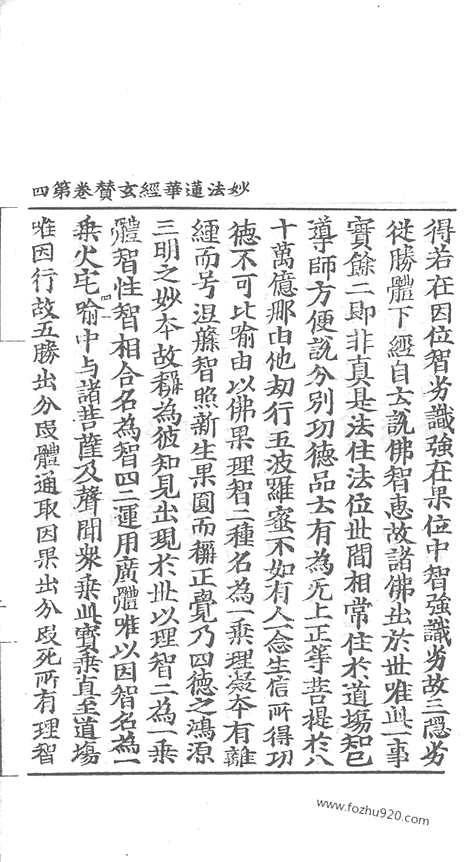 妙法蓮華經玄賛卷第四
得若在因位智劣識強在果位中智強識劣故三隱劣
從勝體下經自亦說佛智惠故諸佛出於世唯此一事
實餘二即非真是法住法位世間相常住於道場知已
導師方便說分別功德品亦有為无上正等菩提於八
十萬億那由他劫行五波羅蜜不如有人念生信所得功
德不可比喻由以佛果理智二種名為一乘理凝本有離
纏而号涅槃智照新生果圓而稱正覺乃四德之鴻源
三明之妙本故稱為彼知見出現於世以理智二為一乘
體智性智相合名為智四二運用廣體唯以因智名為一
乘火宅喻中与諸菩薩及聲聞衆乘此寶乘直至道場
唯因行故五勝出分段體通取因果出分段死所有理智
www.fozhu920.com